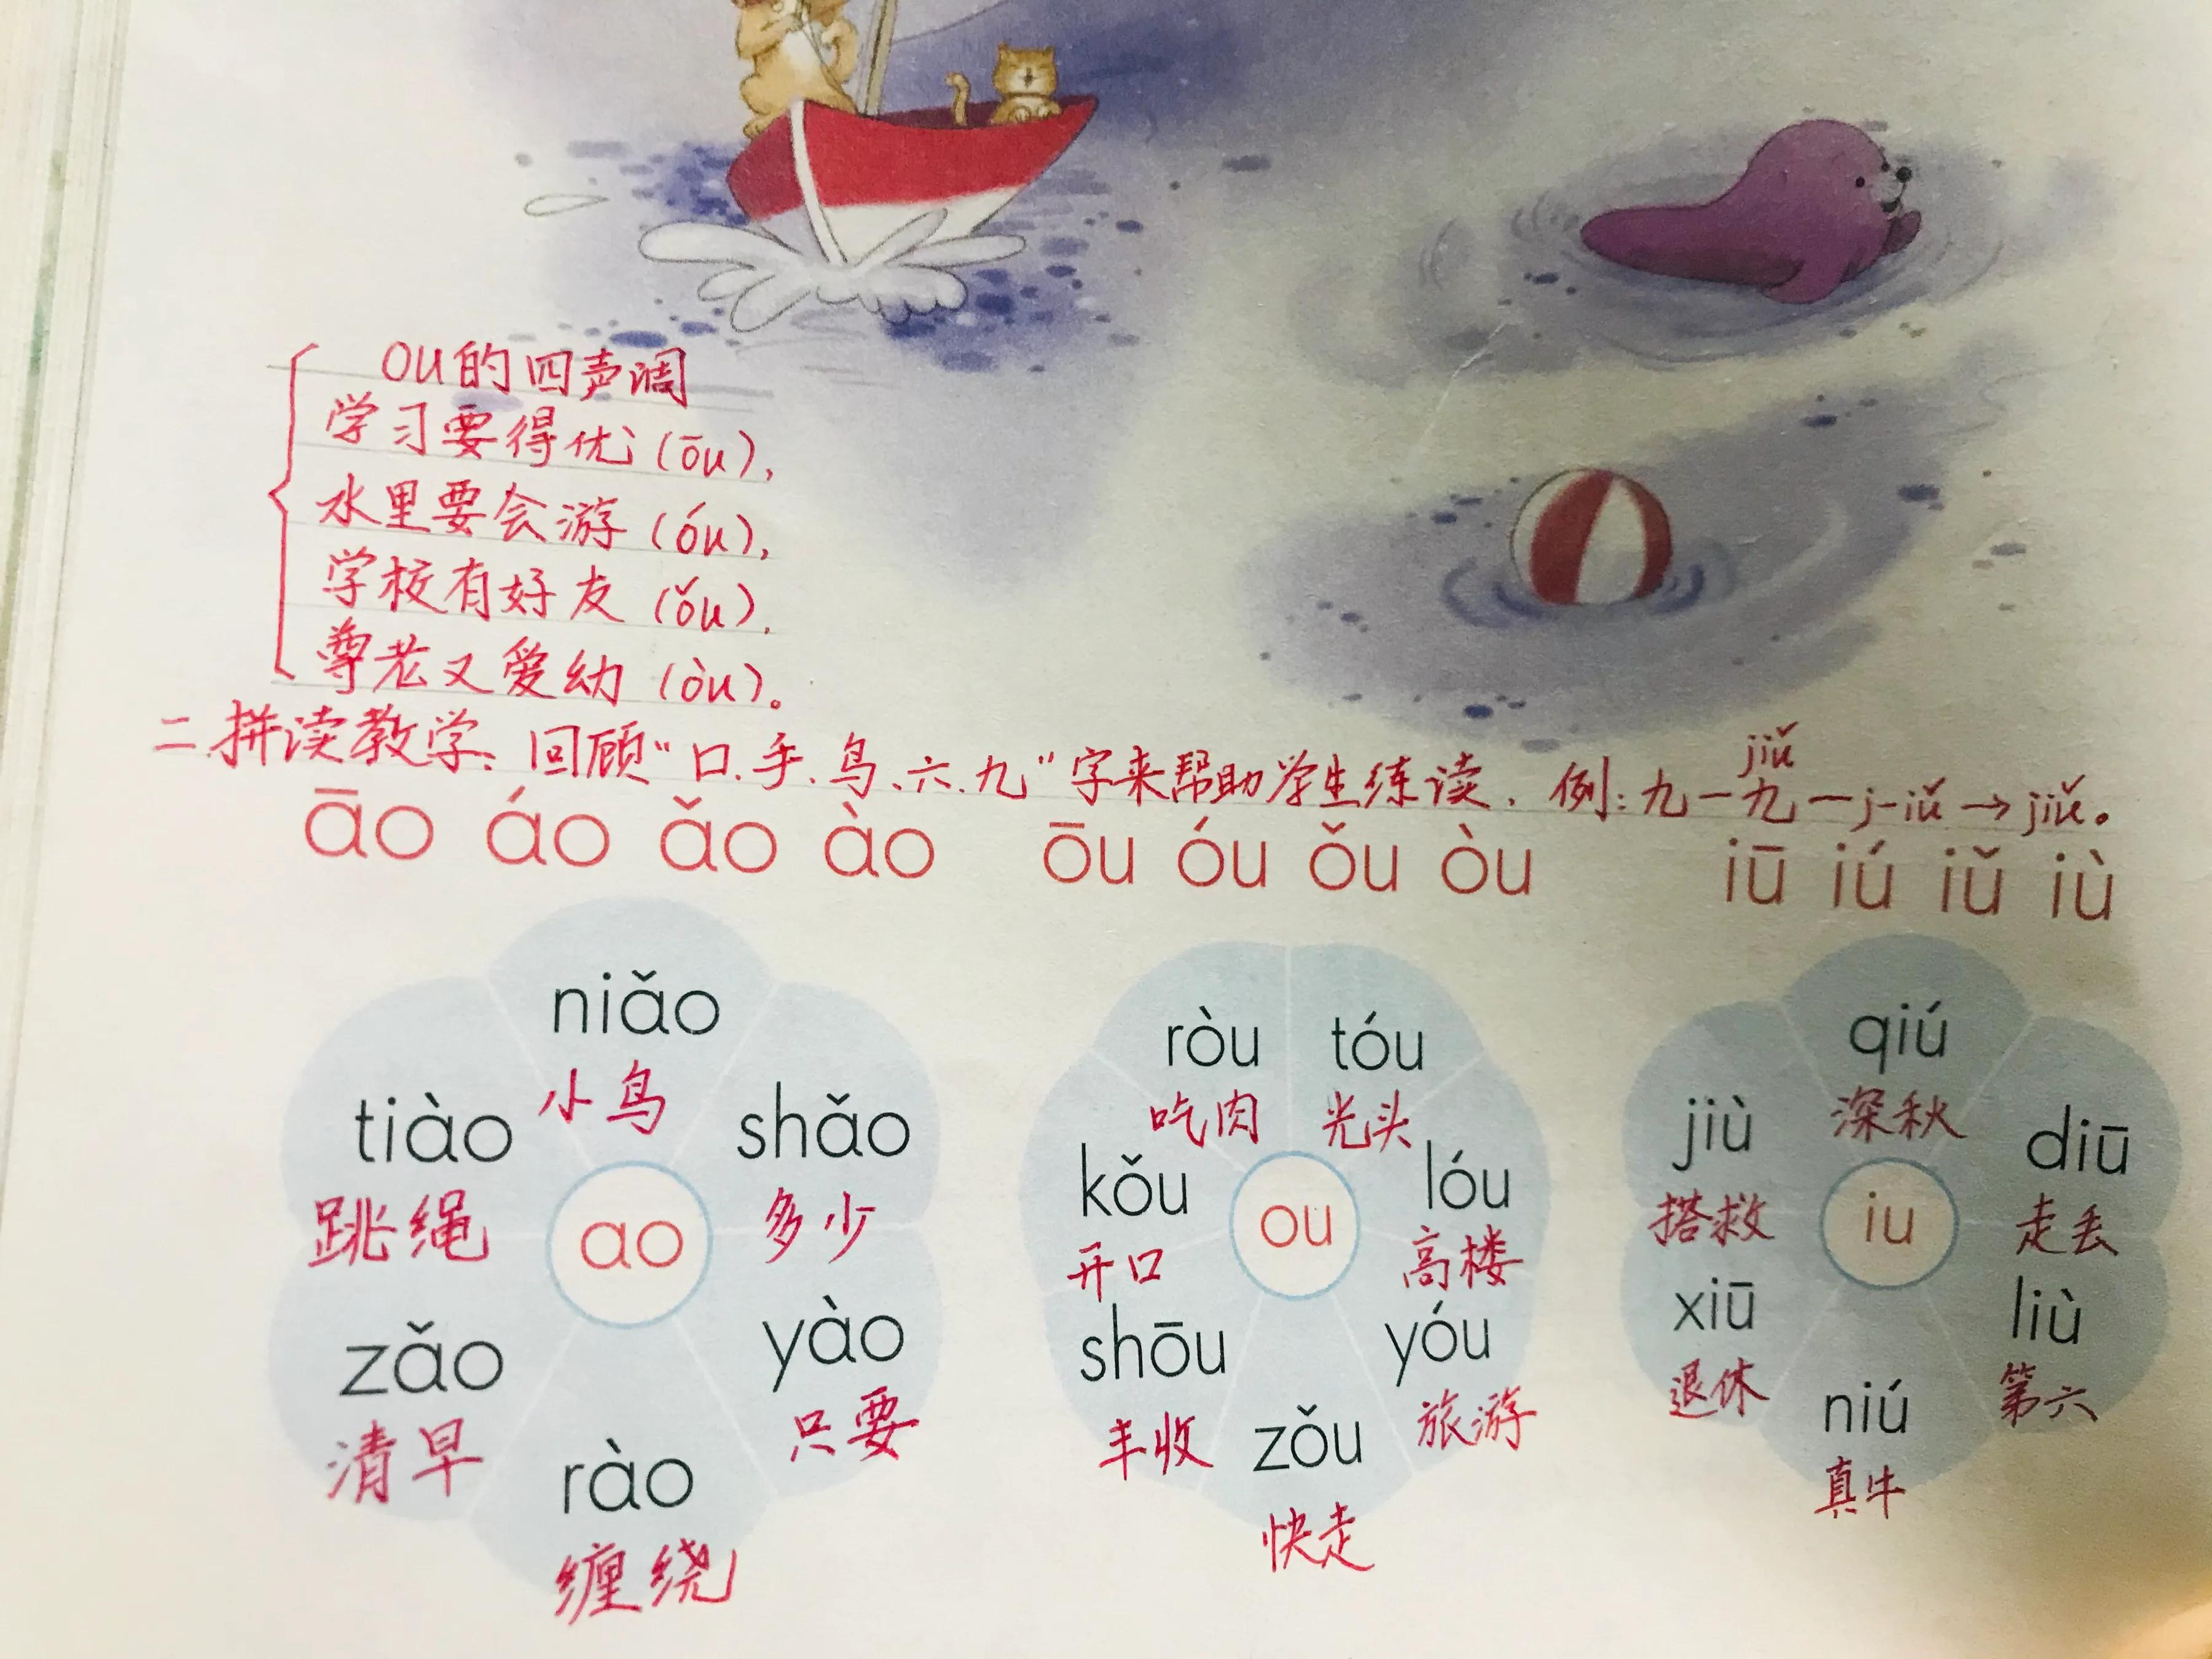 ou的四声调
学习要得优(ōu),
水里要会游(óu),
学校有好友(ǒu),
尊老又爱幼(òu)。
二.拼读教学:回顾"口、手、鸟、六、九"字来帮助学生练读.例:九一九一j-iǔ→jiǔ。
jiǔ
āo áo ǎo ào ōu óu ǒu òu iū iú iǔ iù
niǎo
小鸟
tiào
跳绳
shǎo
多少
ao
zǎo
清早
yào
只要
rào
缠绕
ròu
吃肉
tóu
光头
kǒu
开口
lóu
高楼
ou
shōu
丰收
yóu
旅游
zǒu
快走
qiú
深秋
jiù
搭救
diū
走丢
iu
xiū
退休
liù
第六
niú
真牛